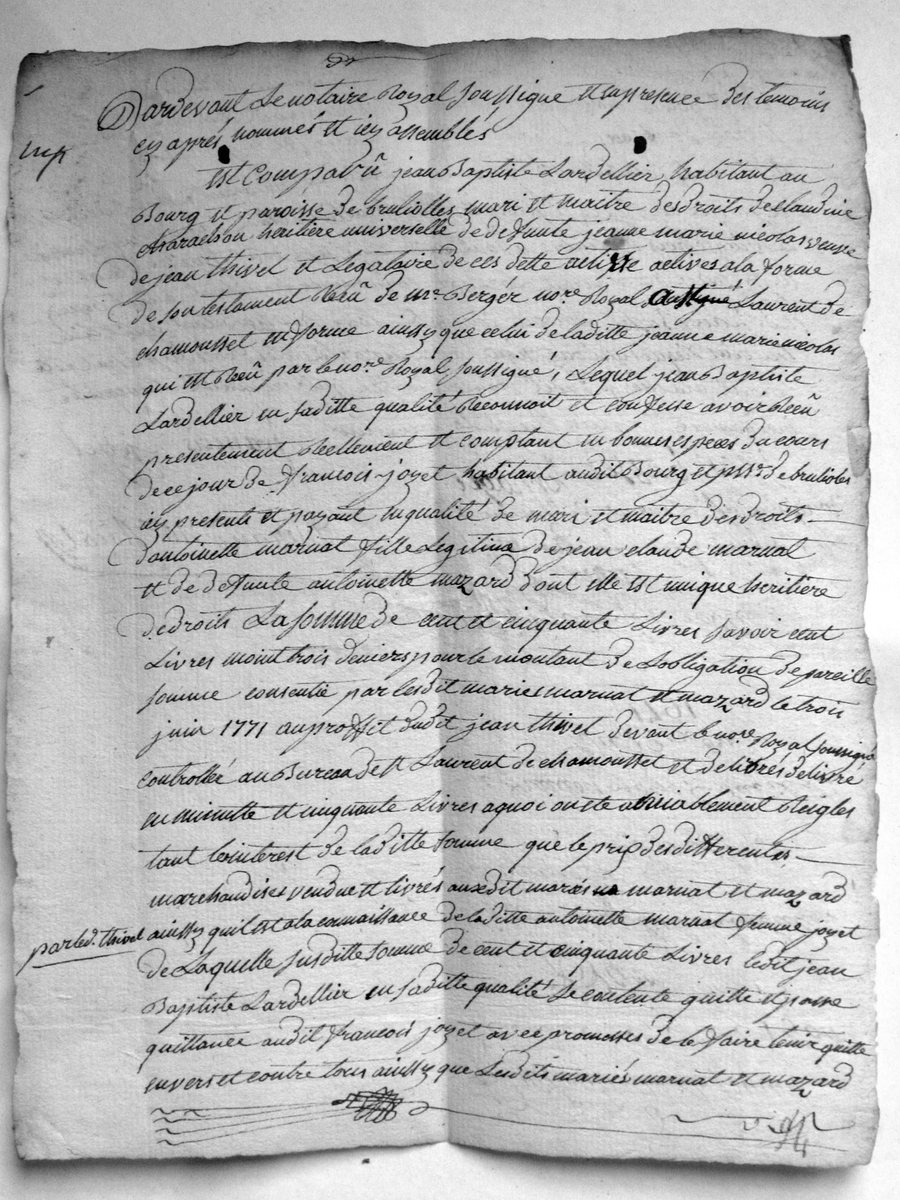 Pardevant Le notaire Royal soussigne et en presence des temoins
cy apres nommés et icy assemblés
Exp
Est Comparû jean Baptiste Lardellier habitant au
Bourg et paroisse de brulioles mari et maitre des droits de claudine
heritiere universelle de defunte jeanne marie nicolas veuve
de jean thivel et Legataire de ces dette actives a la forme
de son testament Receû de mre Bergér nore Royal Laurent de
chamousset en forme ainssy que celui de laditte jeanne marie nicolas
qui est Receû par le nore Royal soussigné, Lequel jean Baptiste
Lardellier en saditte qualité Reconnoit et confesse avoir Receû
presentement Reellement et comptant en bonnes especes du cours
de ce jour de francois joyet habitant audit Bourg et pssr de brulioles
icy present et payant en qualité de mari et maitre des droits
dantoinette marnat fille Legitime de jean claude marnat
et de defunte antoinette mazard dont elle est unique heritiere
de droits La somme de cent et cinquante Livres savoir cent
Livres moint trois deniers pour le montant de Lobligation de pareille
somme consentie par lesdit mariés marnat et mazard le trois
juin 1771 au proffit dudit jean thivel devant le nore Royal soussigné
controllée au Bureau de st Laurent de chamousset et
en minutte et cinquante Livres a quoi on ete amiablement Reigles
tant linterest de laditte somme que le prix des differentes
marchandises vendue et livrés auxdit mariés marnat et mazard
par led. thivel ainssy quil est a la connaissance de laditte antoinette marnat femme joyet
de Laquelle susditte somme de cent et cinquante Livres ledit jean
Baptiste Lardellier en saditte qualité se contente quitte et passe
quittance audit francois joyet avec promesses de le faire tenir quitte
envers et contre tous ainssy que Lesdits mariés marnat et mazard